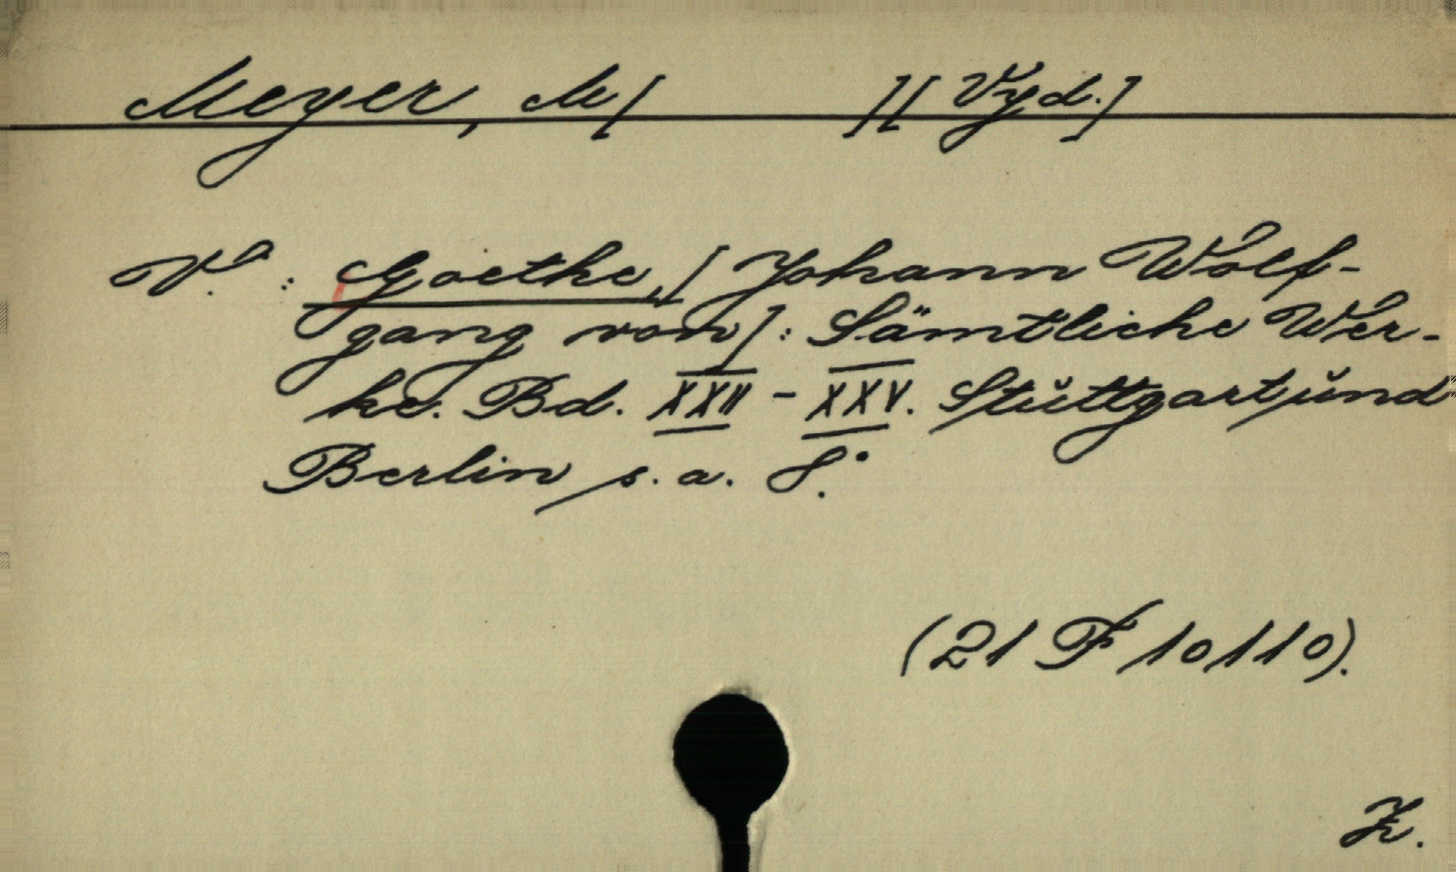 Meyer, M[ ][Vyd.]
V.: Goethe,[Johann Wolf-
gang von]: Sämtliche Wer-
ke. Bd. XXII - XXV. Stuttgart und
Berlin s. a. 8°.
(21 F 10110).
Z.